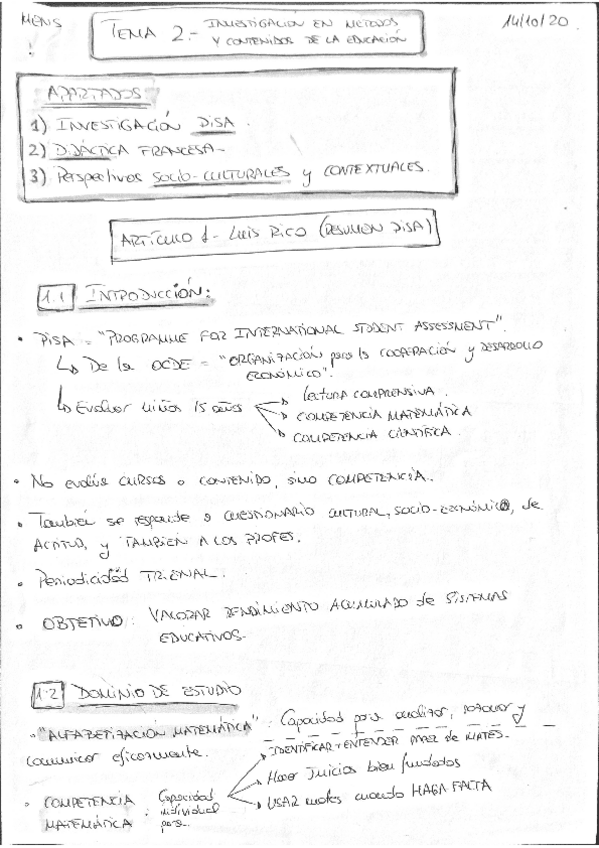 MENS
!
14/10/20
TEMA 2.- INVESTIGACIÓN EN MÉTODOS
Y CONTENIDOS DE LA EDUCACIÓN
APARTADOS
1) INVESTIGACIÓN PISA.
2) DIDÁCTICA FRANCESA.
3) Perspectivas SOCIO-CULTURALES y CONTEXTUALES.
ARTÍCULO 1 - LUIS RICO (RESUMEN PISA)
1.1 INTRODUCCIÓN:
• PISA = "PROGRAMME FOR INTERNATIONAL STUDENT ASSESSMENT".
↳ De la OCDE = "ORGANIZACIÓN para la COOPERACIÓN y DESARROLLO
ECONÓMICO".
↳ Evaluar niños 15 años
→ LECTURA COMPRENSIVA.
→ COMPETENCIA MATEMÁTICA
→ COMPETENCIA CIENTÍFICA.
• No evalúa CURSOS o CONTENIDO, sino COMPETENCIA.
• También se responde a CUESTIONARIO CULTURAL, SOCIO-ECONÓMICO, de
ACTITUD, y TAMBIÉN A LOS PROFES.
• Periodicidad TRIENAL.
• OBJETIVO: VALORAR RENDIMIENTO ACUMULADO de SISTEMAS
EDUCATIVOS.
1.2 DOMINIO DE ESTUDIO
• "ALFABETIZACIÓN MATEMÁTICA": Capacidad para analizar, razonar y
comunicar eficazmente.
• COMPETENCIA MATEMÁTICA: Capacidad individual para...
→ IDENTIFICAR + ENTENDER PAPEL de MATES.
→ Hacer Juicios bien fundados
→ USAR mates cuando HAGA FALTA